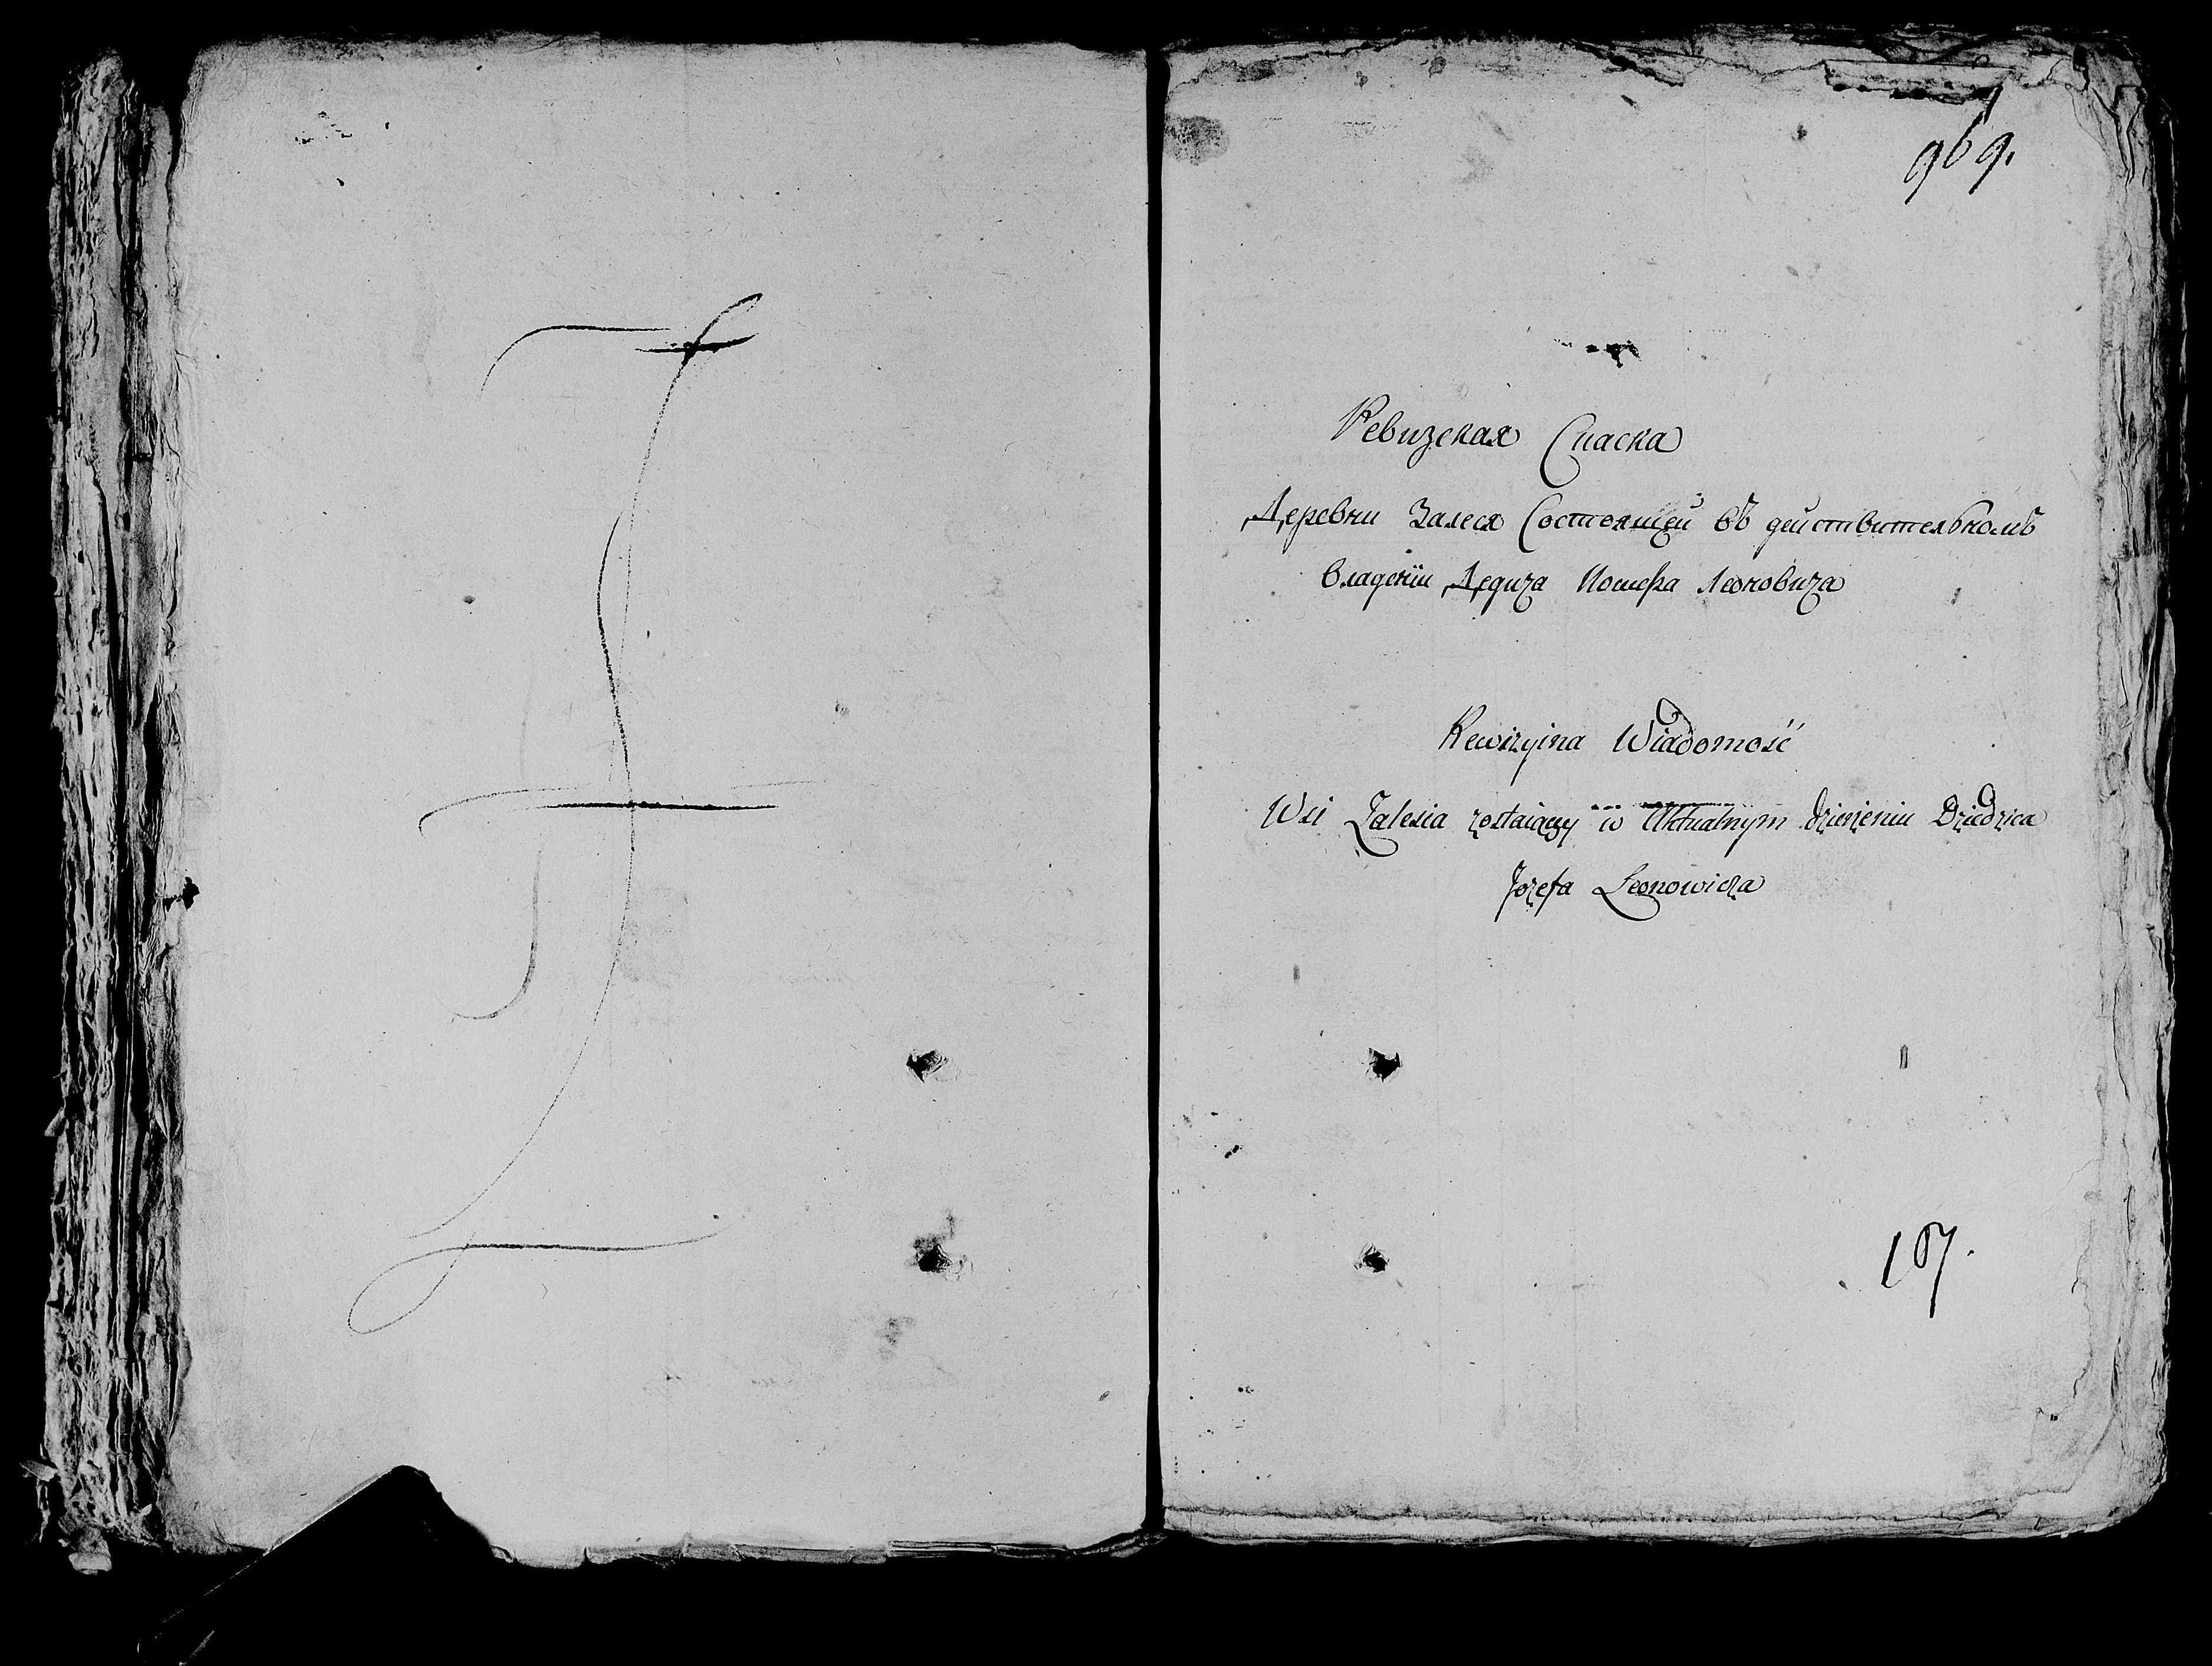 969.
Ревизская Сказка
Деревни Залеся Состоящей въ действительномъ
владении Дедича Иосифа Леоновича
Rewizyina Wiadomość
Wsi Zalesia zostaiącey w Aktualnym dzierzeniu Dziedzica
Jozefa Leonowicza
107.